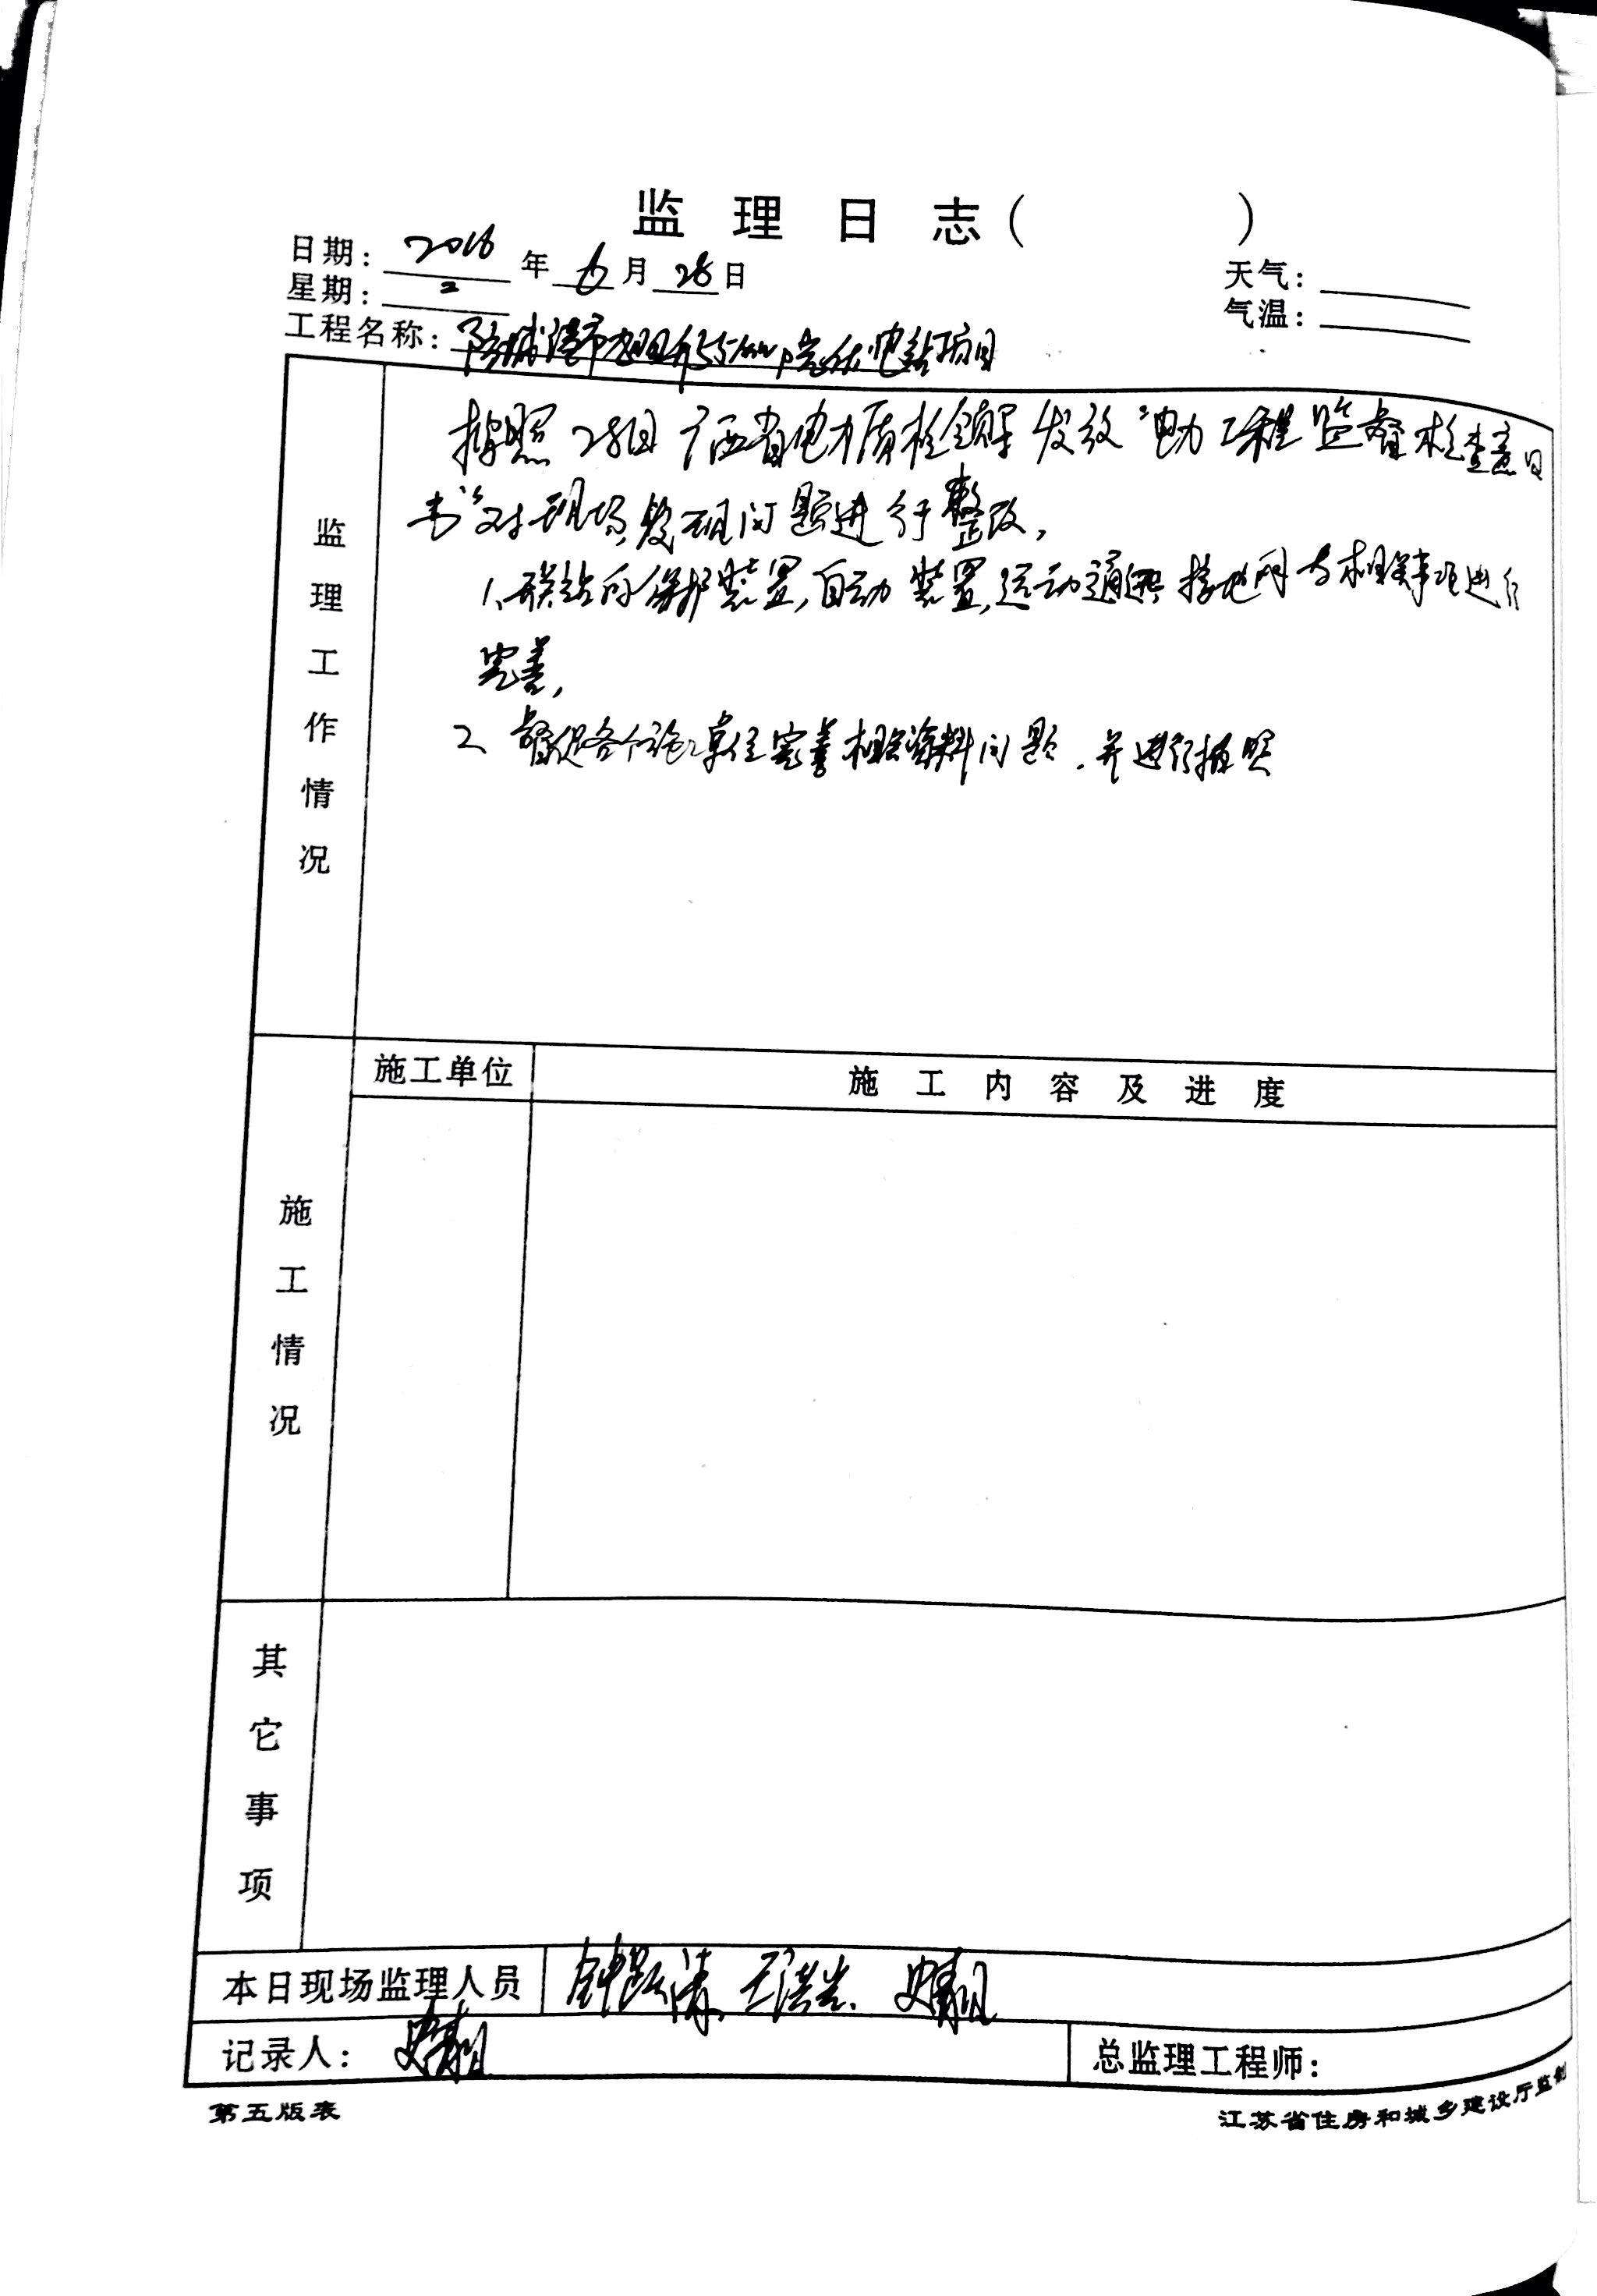 监理日志（ ）
日期：2016年6月28日
天气：
星期：二
气温：
工程名称：防城港市 光伏电站项目
监理工作情况
按照28日广西省电力质检领导发放“电力工程监督检查意见
书”对现场发现问题进行整改，
1、 站的保护装置，自动装置，远动通讯 接地网与相关事项进行
完善，
2、督促各个施工单位完善相应资料问题，并进行拍照
施工情况
施工单位
施工内容及进度
其它事项
本日现场监理人员
记录人：
总监理工程师：
第五版表
江苏省住房和城乡建设厅监制